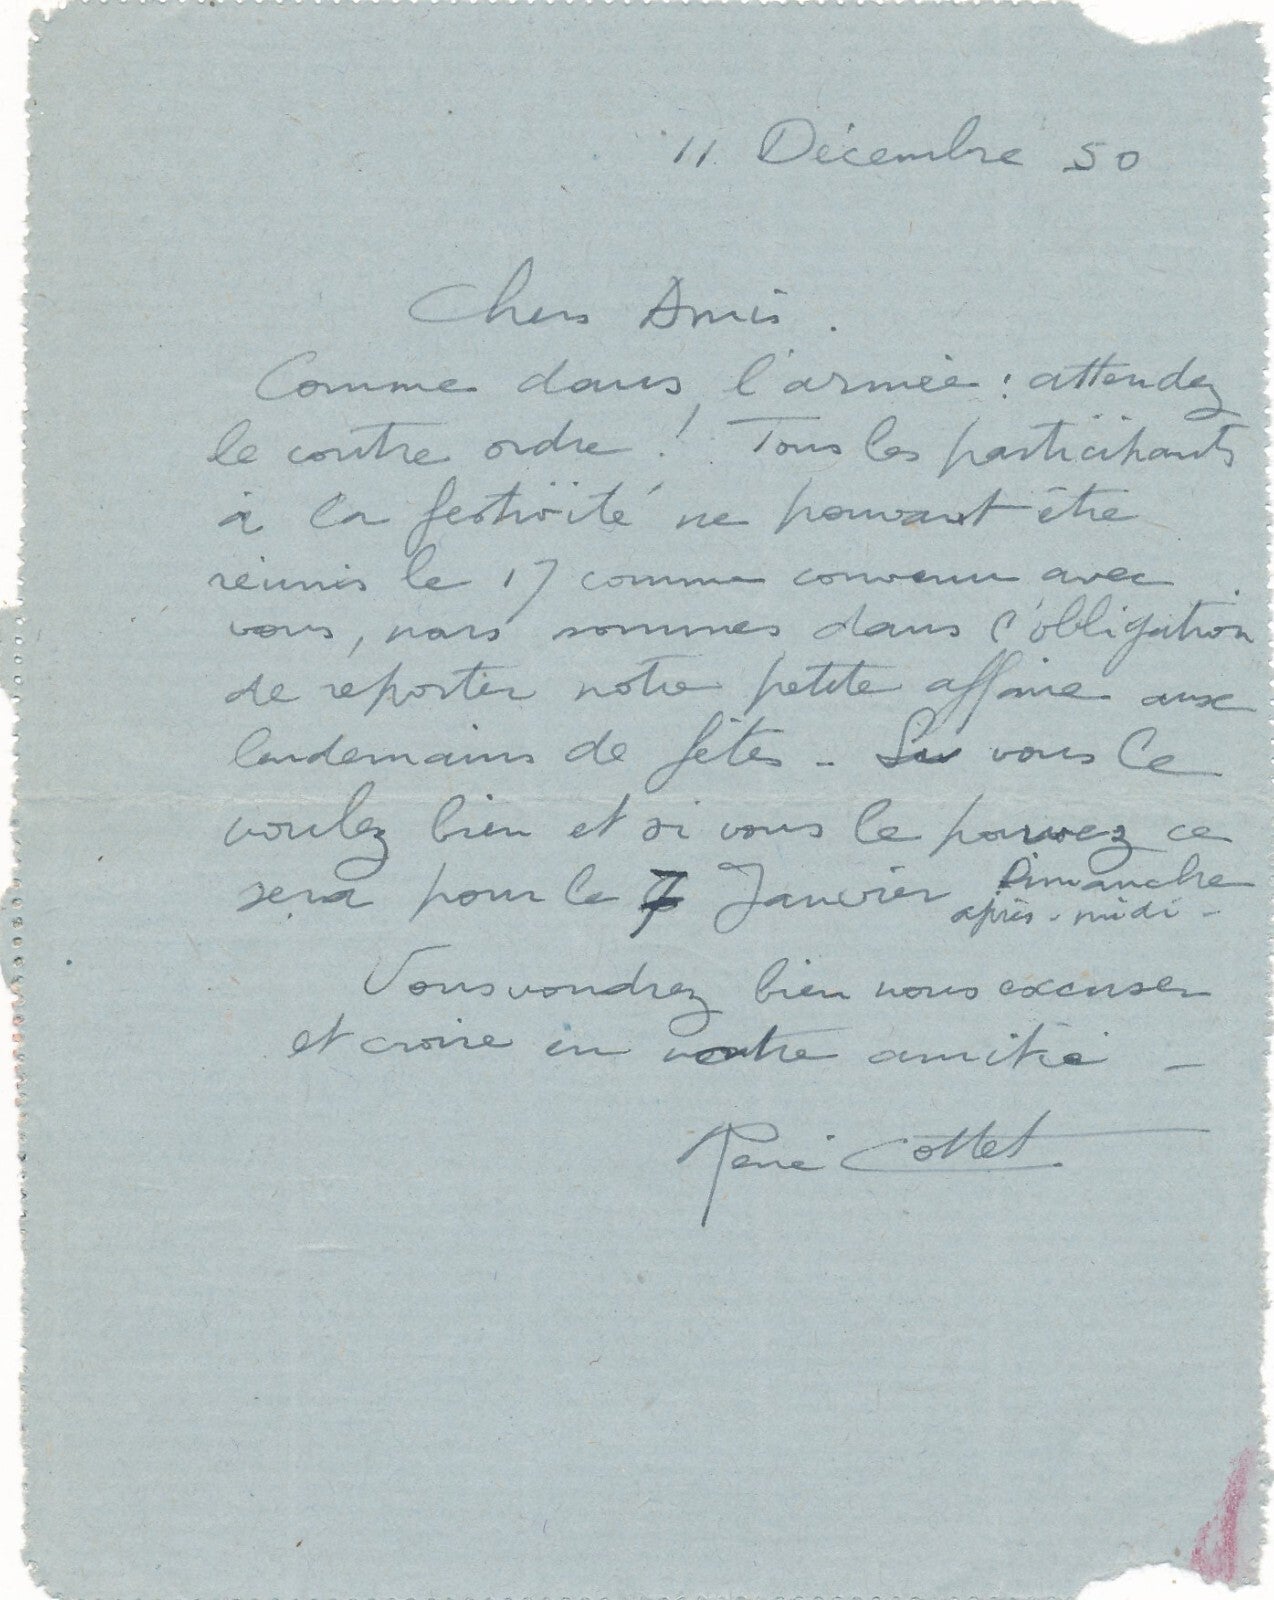 11 Décembre 50
Chers Amis.
Comme dans l'armée : attendez
le contre ordre ! Tous les participants
à la festivité ne pouvant être
réunis le 17 comme convenu avec
vous, nous sommes dans l'obligation
de reporter notre petite affaire aux
lendemains de fêtes - Si vous le
voulez bien et si vous le pouvez ce
sera pour le 7 Janvier Dimanche
après-midi -
Vous voudrez bien nous excuser
et croire en notre amitié -
René Cottet